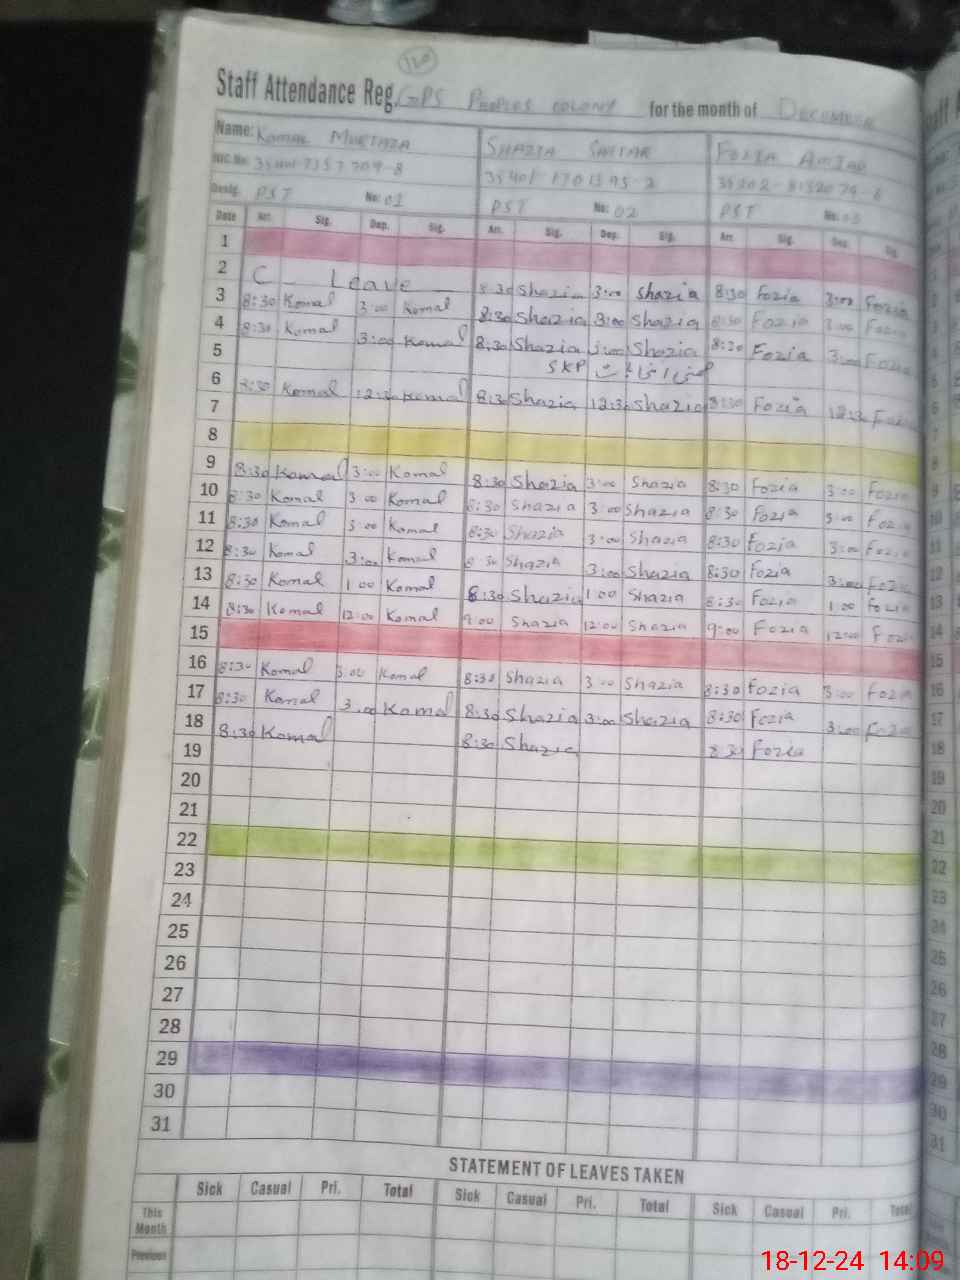 120
Staff Attendance Reg. GPS Peoples colony for the month of December
Name: Komal Murtaza Shazia Sattar Fozia Amjad
NIC No: 35401-7357709-8 35401-1701395-2
Desig. PST No: 01 PST No: 02 PST No: 03
Date Arr. Sig. Dep. Sig. Arr. Sig. Dep. Sig. Arr. Sig. Dep. Sig.
1
2 C - Leave 8:30 Shazia 3:00 Shazia 8:30 Fozia 3:00 Fozia
3 8:30 Komal 3:00 Komal 8:30 Shazia 3:00 Shazia 8:30 Fozia 3:00 Fozia
4 8:30 Komal 3:00 Komal 8:30 Shazia 3:00 Shazia 8:30 Fozia 3:00 Fozia
5 SKP
6 8:30 Komal 12:30 Komal 8:30 Shazia 12:30 Shazia 8:30 Fozia 12:30 Fozia
7
8
9 8:30 Komal 3:00 Komal 8:30 Shazia 3:00 Shazia 8:30 Fozia 3:00 Fozia
10 8:30 Komal 3:00 Komal 8:30 Shazia 3:00 Shazia 8:30 Fozia 3:00 Fozia
11 8:30 Komal 3:00 Komal 8:30 Shazia 3:00 Shazia 8:30 Fozia 3:00 Fozia
12 8:30 Komal 3:00 Komal 8:30 Shazia 3:00 Shazia 8:30 Fozia 3:00 Fozia
13 8:30 Komal 1:00 Komal 8:30 Shazia 1:00 Shazia 8:30 Fozia 1:00 Fozia
14 8:30 Komal 12:00 Komal 9:00 Shazia 12:00 Shazia 9:00 Fozia 12:00 Fozia
15
16 8:30 Komal 3:00 Komal 8:30 Shazia 3:00 Shazia 8:30 Fozia 3:00 Fozia
17 8:30 Komal 3:00 Komal 8:30 Shazia 3:00 Shazia 8:30 Fozia 3:00 Fozia
18 8:30 Komal 8:30 Shazia 8:30 Fozia
19
20
21
22
23
24
25
26
27
28
29
30
31
STATEMENT OF LEAVES TAKEN
Sick Casual Pri. Total Sick Casual Pri. Total Sick Casual Pri. Total
This Month
Previous
18-12-24 14:09